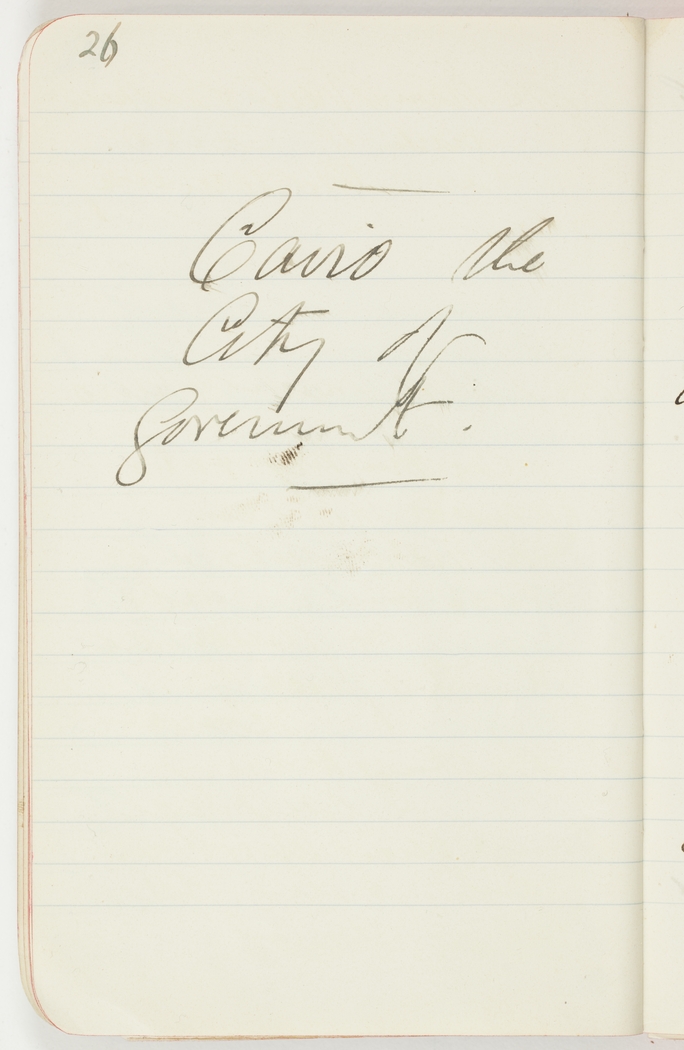 26
Cairo the
City of
Government.